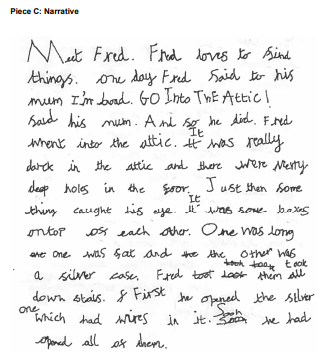 Piece C: Narrative
Meet Fred. Fred loves to find
things. one day Fred Said to his
mum I'm bord. GO Into ThE ATTic!
Said his mum. And so he did. Fred
whent into the attic. It was really
darck in the attic and there were verry
deep holes in the floor. Just then some
thing caught his eye. It was some boxes
ontop of each other. One was long
one was fat and the other was
a silver case. Fred took them all
down stairs. First he opened the silver
one which had wires in it. Soon he had
opened all of them.